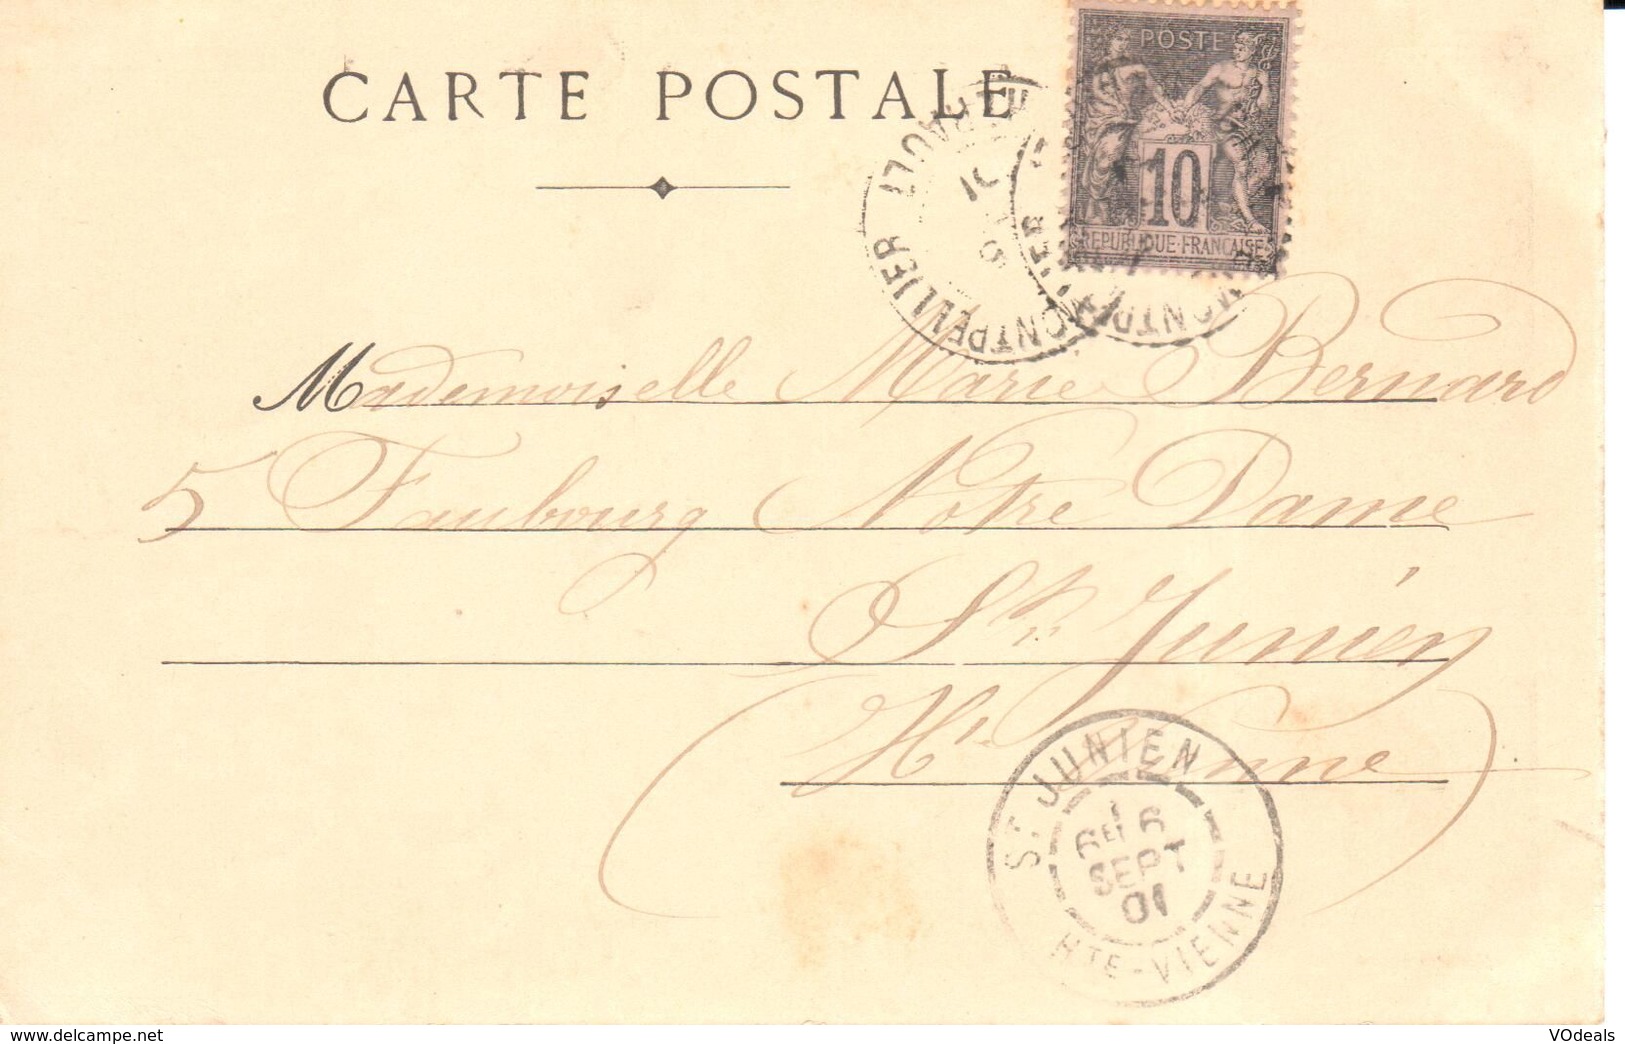 CARTE POSTALE
POSTE
10
REPUBLIQUE FRANCAISE
MONTPELLIER HERAULT
MONTPELLIER
Mademoiselle Marie Bernard
5 Faubourg Notre Dame
St Junien
Hte Vienne
ST JUNIEN
6E 6
SEPT
01
HTE-VIENNE
www.delcampe.net
VOdeals